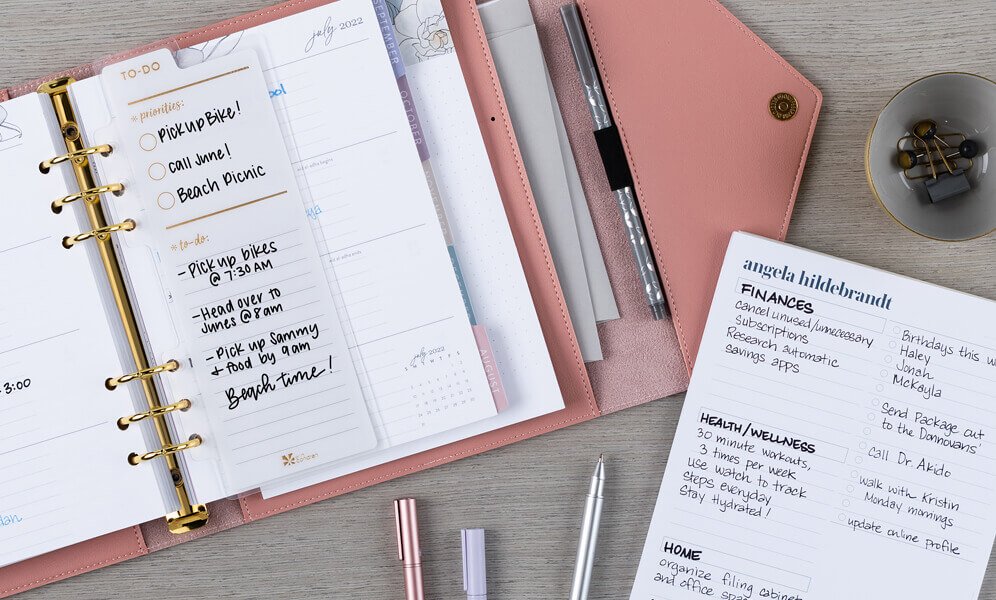 3:00
TO-DO
*priorities:
Pickup Bike!
call June!
Beach Picnic
*to-do:
- Pick up bikes
@ 7:30 AM
- Head over to
Junes @ 8am
- Pick up Sammy
+ food by 9am
Beach time!
july 2022
july 2022
SEPTEMBER
OCTOBER
AUGUST
angela hildebrandt
FINANCES
cancel unused/unnecessary
Subscriptions
Research automatic
savings apps
HEALTH/WELLNESS
30 minute workouts,
3 times per week
use watch to track
steps everyday
Stay Hydrated!
HOME
organize filing cabinet
and office
Birthdays this
Haley
Jonah
McKayla
Send Package out
to the Donnovans'
Call Dr. Akido
walk with Kristin
Monday mornings
update online profile